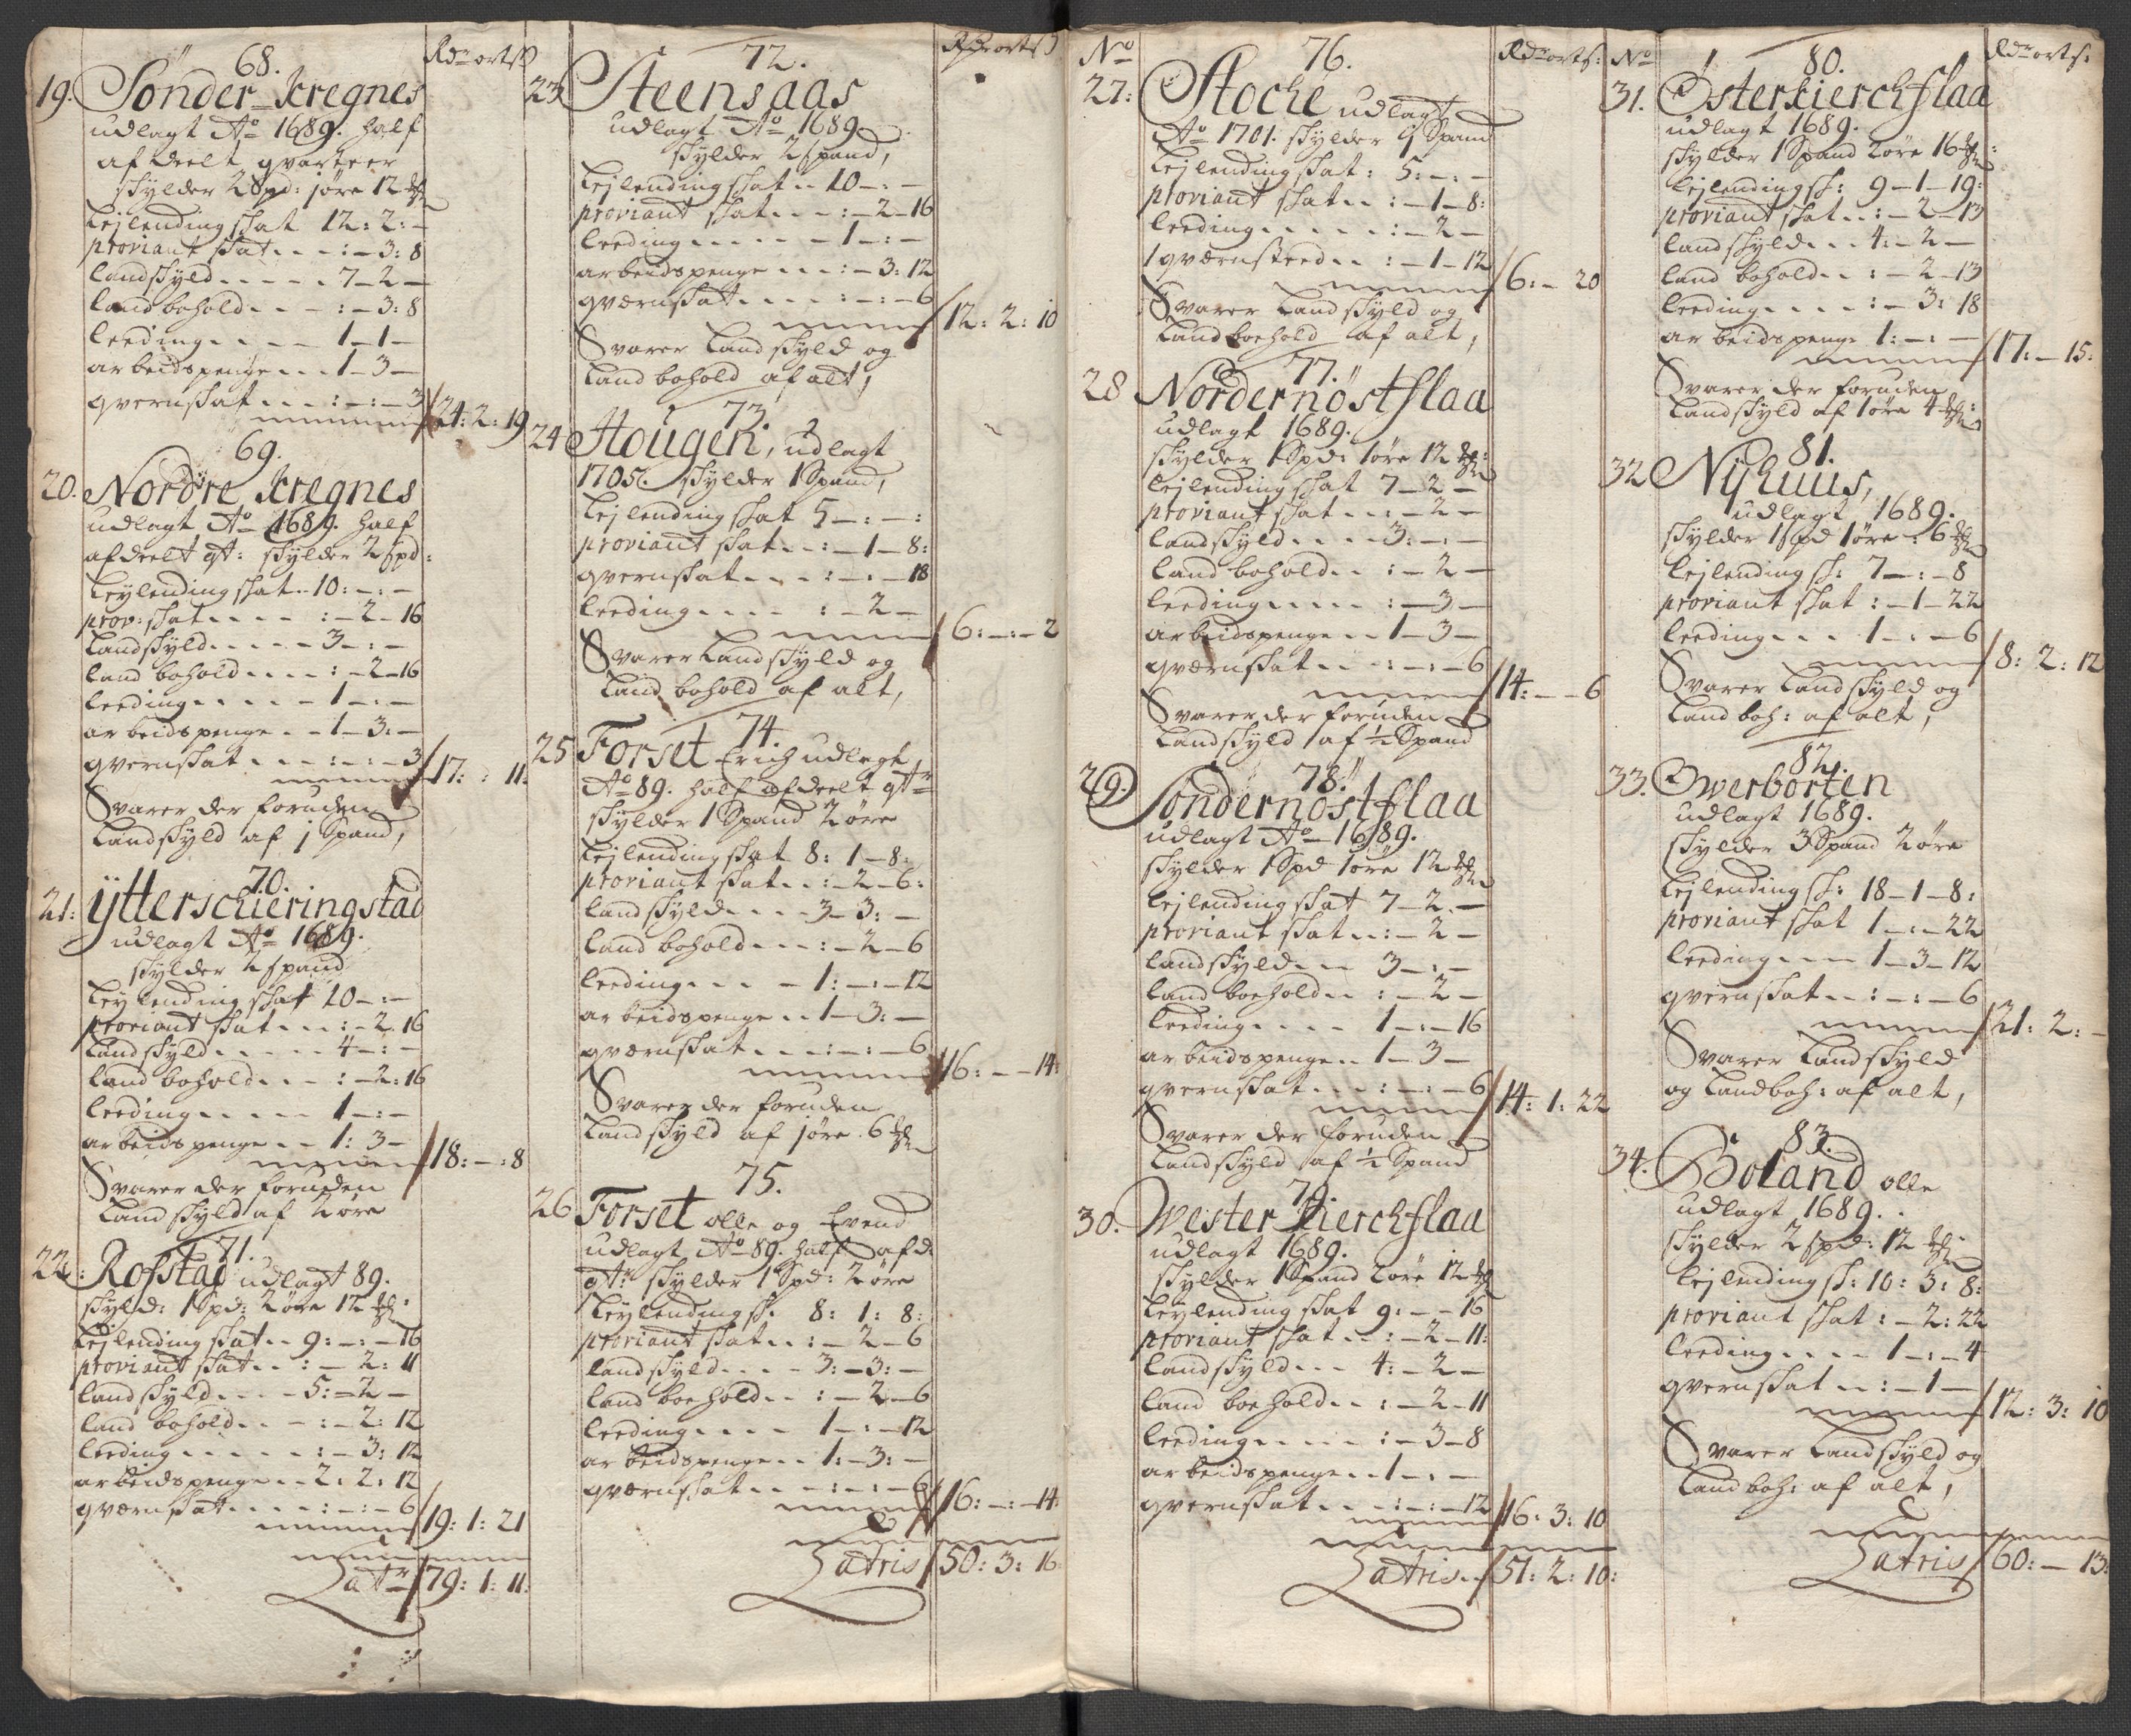 Rdr ort ß
68.
19. Sönder Kregnes
udlagt Ao 1689. half
afdeelt qvarteer
skylder 2 Spd: 1øre 12 ℔
Lejlending skat 12: 2: –
proviant skat . . . : – 3: 8
landskyld . . . . . 7 – 2 –
land bohold . . . : – 3: 8
leeding . . . . . 1 – 1 –
arbeidspenge . . . 1 – 3 –
qvernskat . . . : – : – 3
24: 2: 19
69.
20. Nordre Kregnes
udlagt Ao 1689. half
afdeelt qt: skylder 2 spd:
Leylending skat . . 10: – : –
prov: skat . . . . : – 2 – 16
Landskyld . . . . . 3 – : –
land bohold . . . . : – 2 – 16
leeding . . . . . 1 – : –
arbeidspenge . . 1 – 3: –
qvernskat . . . : – : – 3
17: : 11:
Svarer der foruden
Landskyld af 1 Spand,
70.
21: ÿtterschieringstad
udlagt Ao 1689.
skylder 2 spand
Leylending skat 10 – : –
proviant skat . . . : – 2. 16
Landskyld . . . . . 4 – : –
land bohold . . . : – 2: 16
leeding . . . . . 1 – : –
arbeidspenge . . 1: 3 –
18: – : 8
Svarer der foruden
Landskyld af 2 øre
71.
22: Rofstad udlagt 89.
skyld: 1 Spd: 2 øre 12 ℔:
Lejlending skat . . 9: – : – 16
proviant skat . . : – 2: 11
landskyld . . . . 5: – 2 –
land bohold . . – : – 2: 12
leeding . . . . . : – 3: 12
arbeidspenge . . 2: 2: 12
qværnskat . . . . : – : – 6
19: 1: 21
Latr 79: 1: 11:
Rdr ort ß
72.
23 Steensaas
udlagt Ao 1689
skylder 2 spand,
Lejlending skat . . 10 – : –
proviant skat . . . : – 2 – 16
leeding . . . . . – 1 – : –
arbeidspenge . . . : – 3: 12
qværnskat . . . . : – : – 6
12: 2: 10
Svarer Landskyld og
Land bohold af alt,
73.
24 Hougen, udlagt
1705. skylder 1 Spand,
Lejlending skat 5 – : – :
proviant skat . . : – 1 – 8:
qvernskat . . . : – : – 18
leeding . . . . : – 2 –
6: – : – 2
Svarer Landskyld og
Land bohold af alt,
74.
25 Forset Erich udlagt
Ao 89. half afdeelt qtr
skylder 1 Spand 2 øre
Lejlending skat 8: 1 – 8:
proviant skat . . : – 2 – 6:
landskyld . . . . 3 – 3: –
land bohold . . . : – 2 – 6
leeding . . . – 1: – : – 12
arbeidspenge . . 1 – 3: –
qværnskat . . . : – : – 6
16: – – 14:
Svarer der foruden
Landskyld af 1øre. 6 ℔
75.
26 Forset olle og Evend
udlagt Ao 89. half afd:
qt: skylder 1 Spd: 2 øre
Leylending sk. 8: 1: 8:
proviant skat . . : – 2 – 6
landskyld . . . . 3: – 3: –
land boehold . . : – 2 – 6
leeding . . . . 1 – : – 12
arbeidspenge . . 1: – 3: –
qværnskat . . . – : – : – 6
16: – : – 14:
Latris 50: 3: 16:
No
Rdr ort ß:
76.
27: Stoche udlagt
Ao 1701. skylder 1 Spand
Lejlending skat: 5: – : –
proviant skat . . : – 1 – 8:
leeding . . . . . : – 2 –
1 qværnsteed . . : – 1 – 12
6: – 20
Svarer Landskyld og
Land boehold af alt,
77.
28 Nordernöstflaa
udlagt 1689.
skylder 1 Spd: 1øre 12 ℔:
lejlending skat 7 – 2 –
proviant skat . . : – 2 –
landskyld . . . . 3: – : –
land bohold . . : – 2 –
leeding . . . . . : – 3 –
arbeidspenge . . 1 – 3 –
qværnskat . . . : – : – 6
14: – – 6
Svarer der foruden
Landskyld af ½ Spand
78.
29. Söndernöstflaa
udlagt Ao 1689.
skylder 1 Spd 1øre 12 ℔
lejlending skat 7 – 2. –
proviant skat . . : – 2 –
landskyld . . . 3 – : –
land boehold . . : – 2 –
leeding . . . . 1 – : – 16
arbeidspenge . . 1 – 3 –
qvernskat . . . : – : – 6
14: 1: 22
Svarer der foruden
Landskyld af ½ Spand
79.
30. Wester Kierchflaa
udlagt 1689.
skylder 1 Spand 2 øre 12 ℔
Leylending skat 9: – – 16
proviant skat . . : – 2 – 11:
landskyld . . . 4: – 2 –
land boehold . . : – 2 – 11
leeding . . . . . : – 3 – 8
arbeidspenge . . 1 – : –
qvernskat . . . : – : – 12
16: 3: 10
Latris . . 51: 2: 10:
No
Rdr ort ß:
80.
31. Österkierchflaa
udlagt 1689.
skylder 1 Spand 2 øre 16 ℔:
Lejlending sk: 9 – 1 – 19:
proviant skat . . : – 2 – 13
landskyld . . . 4: – 2 –
land bohold . . : – 2 – 13
leeding . . . . : – 3: 18
arbeidspenge 1: – : –
17: – 15:
Svarer der foruden
Landskyld af 1øre 4 ℔:
81.
32 Nyhuus,
udlagt 1689.
skylder 1 spd 1øre: 6 ℔
Lejlending sk: 7 – : – 8
proviant skat : – 1 – 22
leeding . . . 1 – : – 6
8: 2: 12
Svarer Landskyld og
Land boh: af alt,
82.
33. Owerborten
udlagt 1689.
skylder 3 Spand 2 øre
Lejlending sk: 18 – 1 – 8:
proviant skat 1 – : – 22
leeding . . . 1 – 3 – 12
qvernskat . . : – : – 6
21: 2: –
Svarer Landskyld
og Landboh: af alt,
83.
34. Boland olle
udlagt 1689.
skylder 2 spd: 12 ℔
Lejlending sk: 10: 3: 8:
proviant skat : – 2: 22
leeding . . . . 1 – : – 4
qvernskat . . : – 1 –
12: 3: 10
Svarer Landskyld og
Land boh: af alt,
Latris 60: – 13: